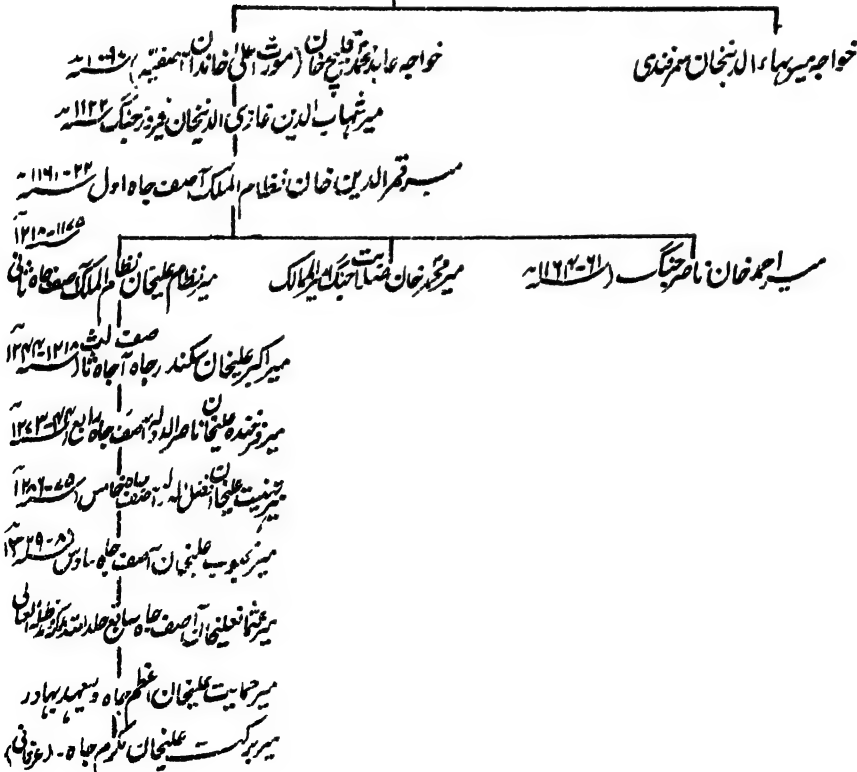 خواجہ میر بہاء الدینخان سمرقندی
خواجہ عابد محمد قلیچ خان (مورث اعلیٰ خاندان آصفیہ) سنہ ۱۰۹۸
میر شہاب الدین غازی الدینخان فیروز جنگ سنہ ۱۱۲۲
میر قمر الدین خان نظام الملک آصف جاہ اول سنہ ۲۲-۱۱۶۱
میر احمد خان ناصر جنگ (سنہ ۶۱-۱۱۶۴)
میر محمد خان صلابت جنگ امیر الممالک
میر نظام علیخان نظام الملک آصف جاہ ثانی ۱۱۷۵-۱۲۱۸
میر اکبر علیخان سکندر جاہ آصف جاہ ثالث (۱۲۱۸-۱۲۴۴
میر فرخندہ علیخان ناصر الدولہ آصف جاہ رابع (۴۴-۱۲۷۳
میر تہنیت علیخان افضل الدولہ آصف جاہ خامس (۷۵-۱۲۸۶
میر محبوب علیخان آصف جاہ سادس (۸-۱۳۲۹
میر عثمانعلیخان آصف جاہ سابع خلد اللہ ملکہ مدظلہ العالی
میر حمایت علیخان اعظم جاہ ولیعہد بہادر
میر برکت علیخان مکرم جاہ - (عثمانی)